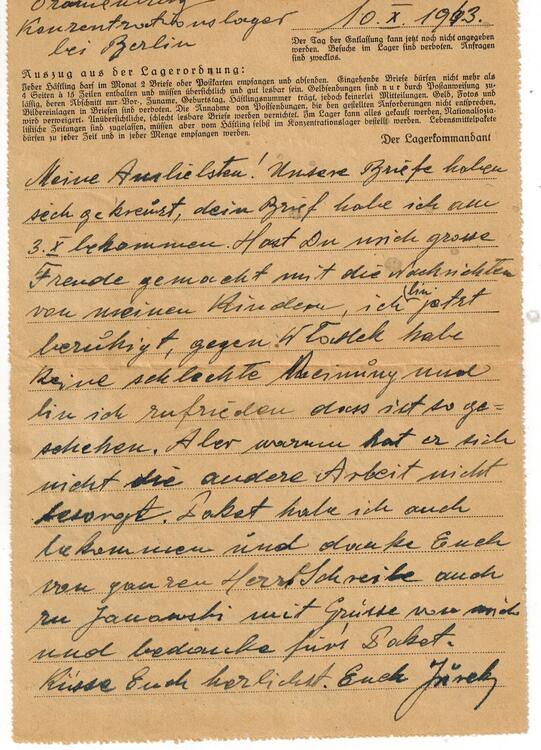 Oranienburg
Konzentrationslager
bei Berlin
10. X. 1943.
Der Tag der Entlassung kann jetzt noch nicht angegeben
werden. Besuche im Lager sind verboten. Anfragen
sind zwecklos.
Auszug aus der Lagerordnung:
Jeder Häftling darf im Monat 2 Briefe oder Postkarten empfangen und absenden. Eingehende Briefe dürfen nicht mehr als
4 Seiten à 15 Zeilen enthalten und müssen übersichtlich und gut lesbar sein. Geldsendungen sind nur durch Postanweisung zu-
lässig, deren Abschnitt nur Vor-, Zuname, Geburtstag, Häftlingsnummer trägt, jedoch keinerlei Mitteilungen. Geld, Fotos und
Bildereinlagen in Briefen sind verboten. Die Annahme von Postsendungen, die den gestellten Anforderungen nicht entsprechen,
wird verweigert. Unübersichtliche, schlecht lesbare Briefe werden vernichtet. Im Lager kann alles gekauft werden. Nationalsozia-
listische Zeitungen sind zugelassen, müssen aber vom Häftling selbst im Konzentrationslager bestellt werden. Lebensmittelpakete
dürfen zu jeder Zeit und in jeder Menge empfangen werden.
Der Lagerkommandant
Meine Amliebsten! Unsere Briefe haben
sich gekreuzt, dein Brief habe ich am
3. X bekommen. Hast Du mich grosse
Freude gemacht mit die Nachrichten
von meinen Kindern, ich bin jetzt
beruhigt, gegen Władek habe
keine schlechte Meinung und
bin ich zufrieden dass ist so ge-
schehen. Aber warum hat er sich
nicht die andere Arbeit nicht
besorgt. Paket habe ich auch
bekommen und danke Euch
von ganzen Herz. Schreibe auch
zu Janowski mit Grüsse von mich
und bedanke fürs Paket.
Küsse Euch herlichst. Euch Jurek